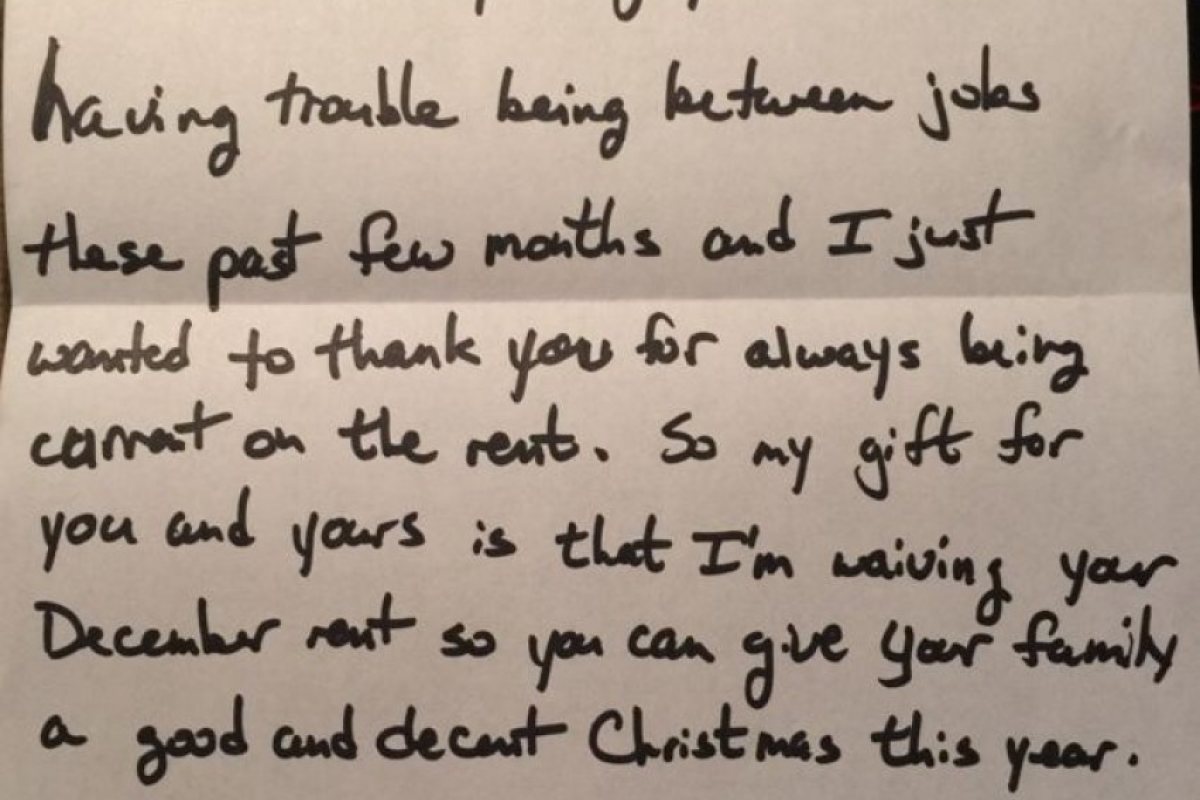 having trouble being between jobs
these past few months and I just
wanted to thank you for always being
current on the rent. So my gift for
you and yours is that I'm waiving your
December rent so you can give your family
a good and decent Christmas this year.